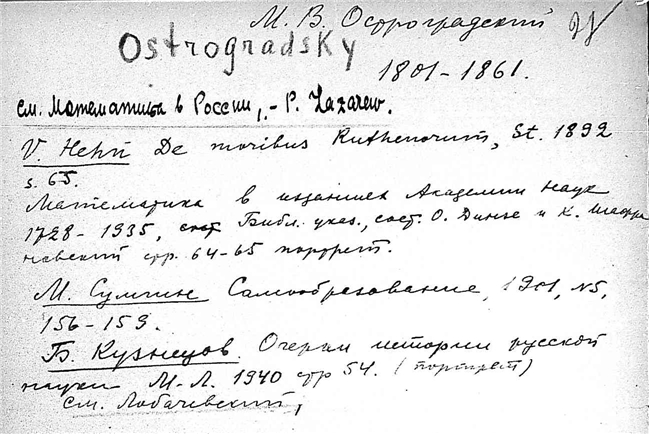 М. В. Остроградский
Ostrogradsky
1801-1861.
см. Математика в России, - P. Lazarew.
V. Hehn De moribus Ruthenorum, St. 1892
s. 65.
Математика в изданиях Академии Наук
1728-1935, сост Библ. указ., сост. О. Динзе и К. Шафра
новский стр. 64-65 портрет.
М. Сумкин Самообразование, 1901, N5,
156-159.
Б. Кузнецов. Очерки истории русской
науки М.-Л. 1940 стр 54. (портрет)
см. Лобачевский,